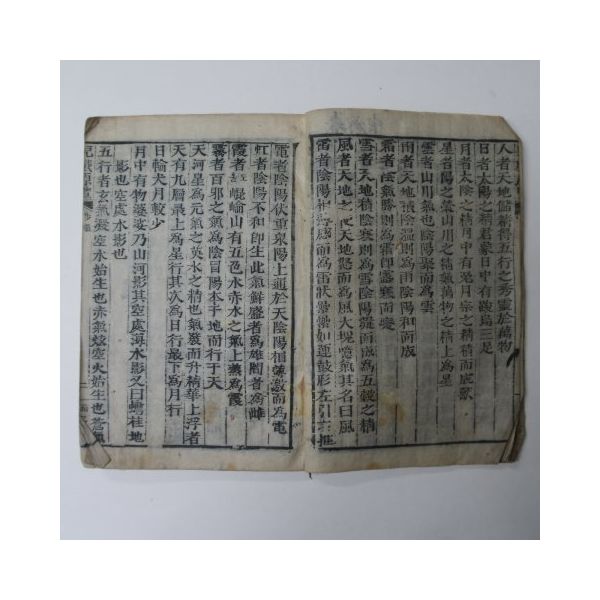 人者天地儲精得五行之秀靈於萬物
日者太陽之精君象日中有踆烏三足
月者太陰之精月中有兎月羣之精積而成獸
星者陽之榮山川之精氣萬物之精上為星
雲者山川氣也陰陽聚而為雲
雨者天地積陰溫則為雨陰陽和而成
霜者陰氣勝則為霜即露寒而變
雪者天地積陰寒則為雪陰凝而成為五穀之精
風者天地之使天地怒而為風大塊噫氣其名曰風
雷者陰陽感而為雷狀纍纍如運鼓形左引右推
電者陰陽伏重泉陽上通於天陰陽相薄激而為電
虹者陰陽不和即生此氣鮮盛者為雄闇者為雌
霞者崑崙山有五色水赤水之氣上蒸為霞
霧者百邪之氣為陰冒陽本于地而行于天
天河星為元氣之英水之精也氣發而升精華上浮者
天有九層最上為星行其次為日行最下為月行
日輪大月較少
月中有物婆娑乃山河影其空處海水影又曰蟾桂地
影也空處水影也
五行者玄氣凝空水始生也赤氣炫空火始生也蒼氣